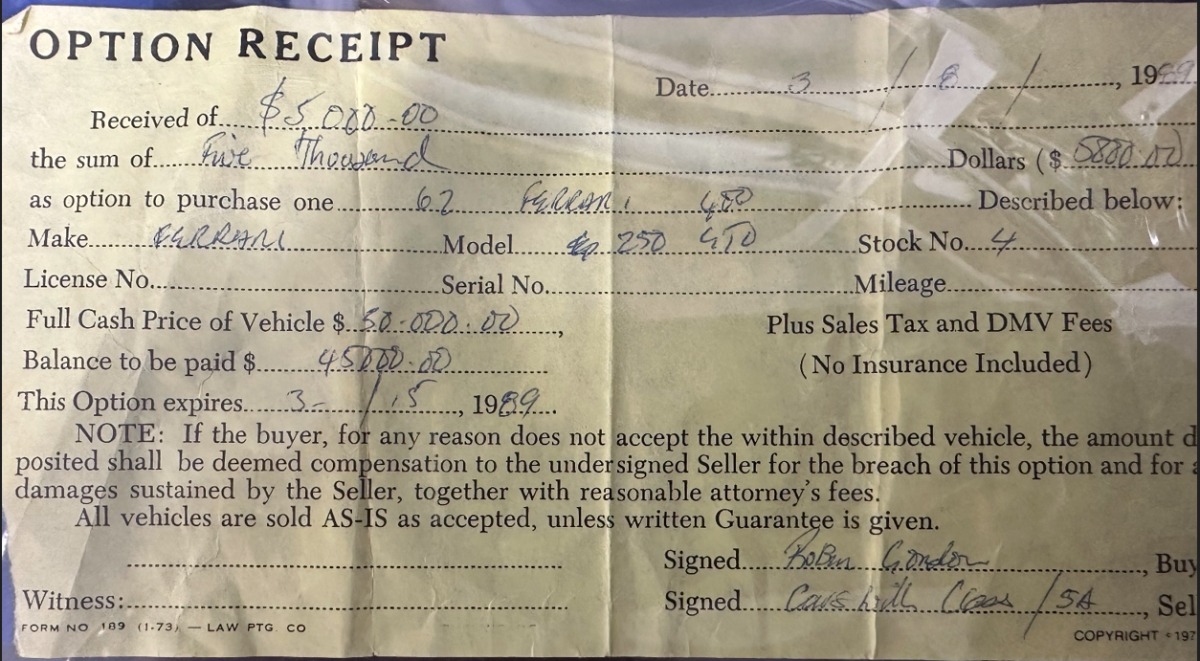 OPTION RECEIPT
Date 3 / 8 / , 1989
Received of $5,000.00
the sum of Five Thousand Dollars ($ 5000.00)
as option to purchase one 62 FERRARI Described below:
Make FERRARI Model 250 Stock No. 4
License No. Serial No. Mileage
Full Cash Price of Vehicle $ 50.000.00, Plus Sales Tax and DMV Fees
Balance to be paid $ 45000.00 (No Insurance Included)
This Option expires 3- / 15, 1989
NOTE: If the buyer, for any reason does not accept the within described vehicle, the amount d
posited shall be deemed compensation to the undersigned Seller for the breach of this option and for a
damages sustained by the Seller, together with reasonable attorney's fees.
All vehicles are sold AS-IS as accepted, unless written Guarantee is given.
Signed Gordon, Buy
Witness: Signed Cars With Class / SA, Sel
FORM NO 189 (1-73) — LAW PTG. CO COPYRIGHT © 197